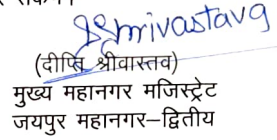 Shrivastava
(दीप्ति श्रीवास्तव)
मुख्य महानगर मजिस्ट्रेट
जयपुर महानगर–द्वितीय